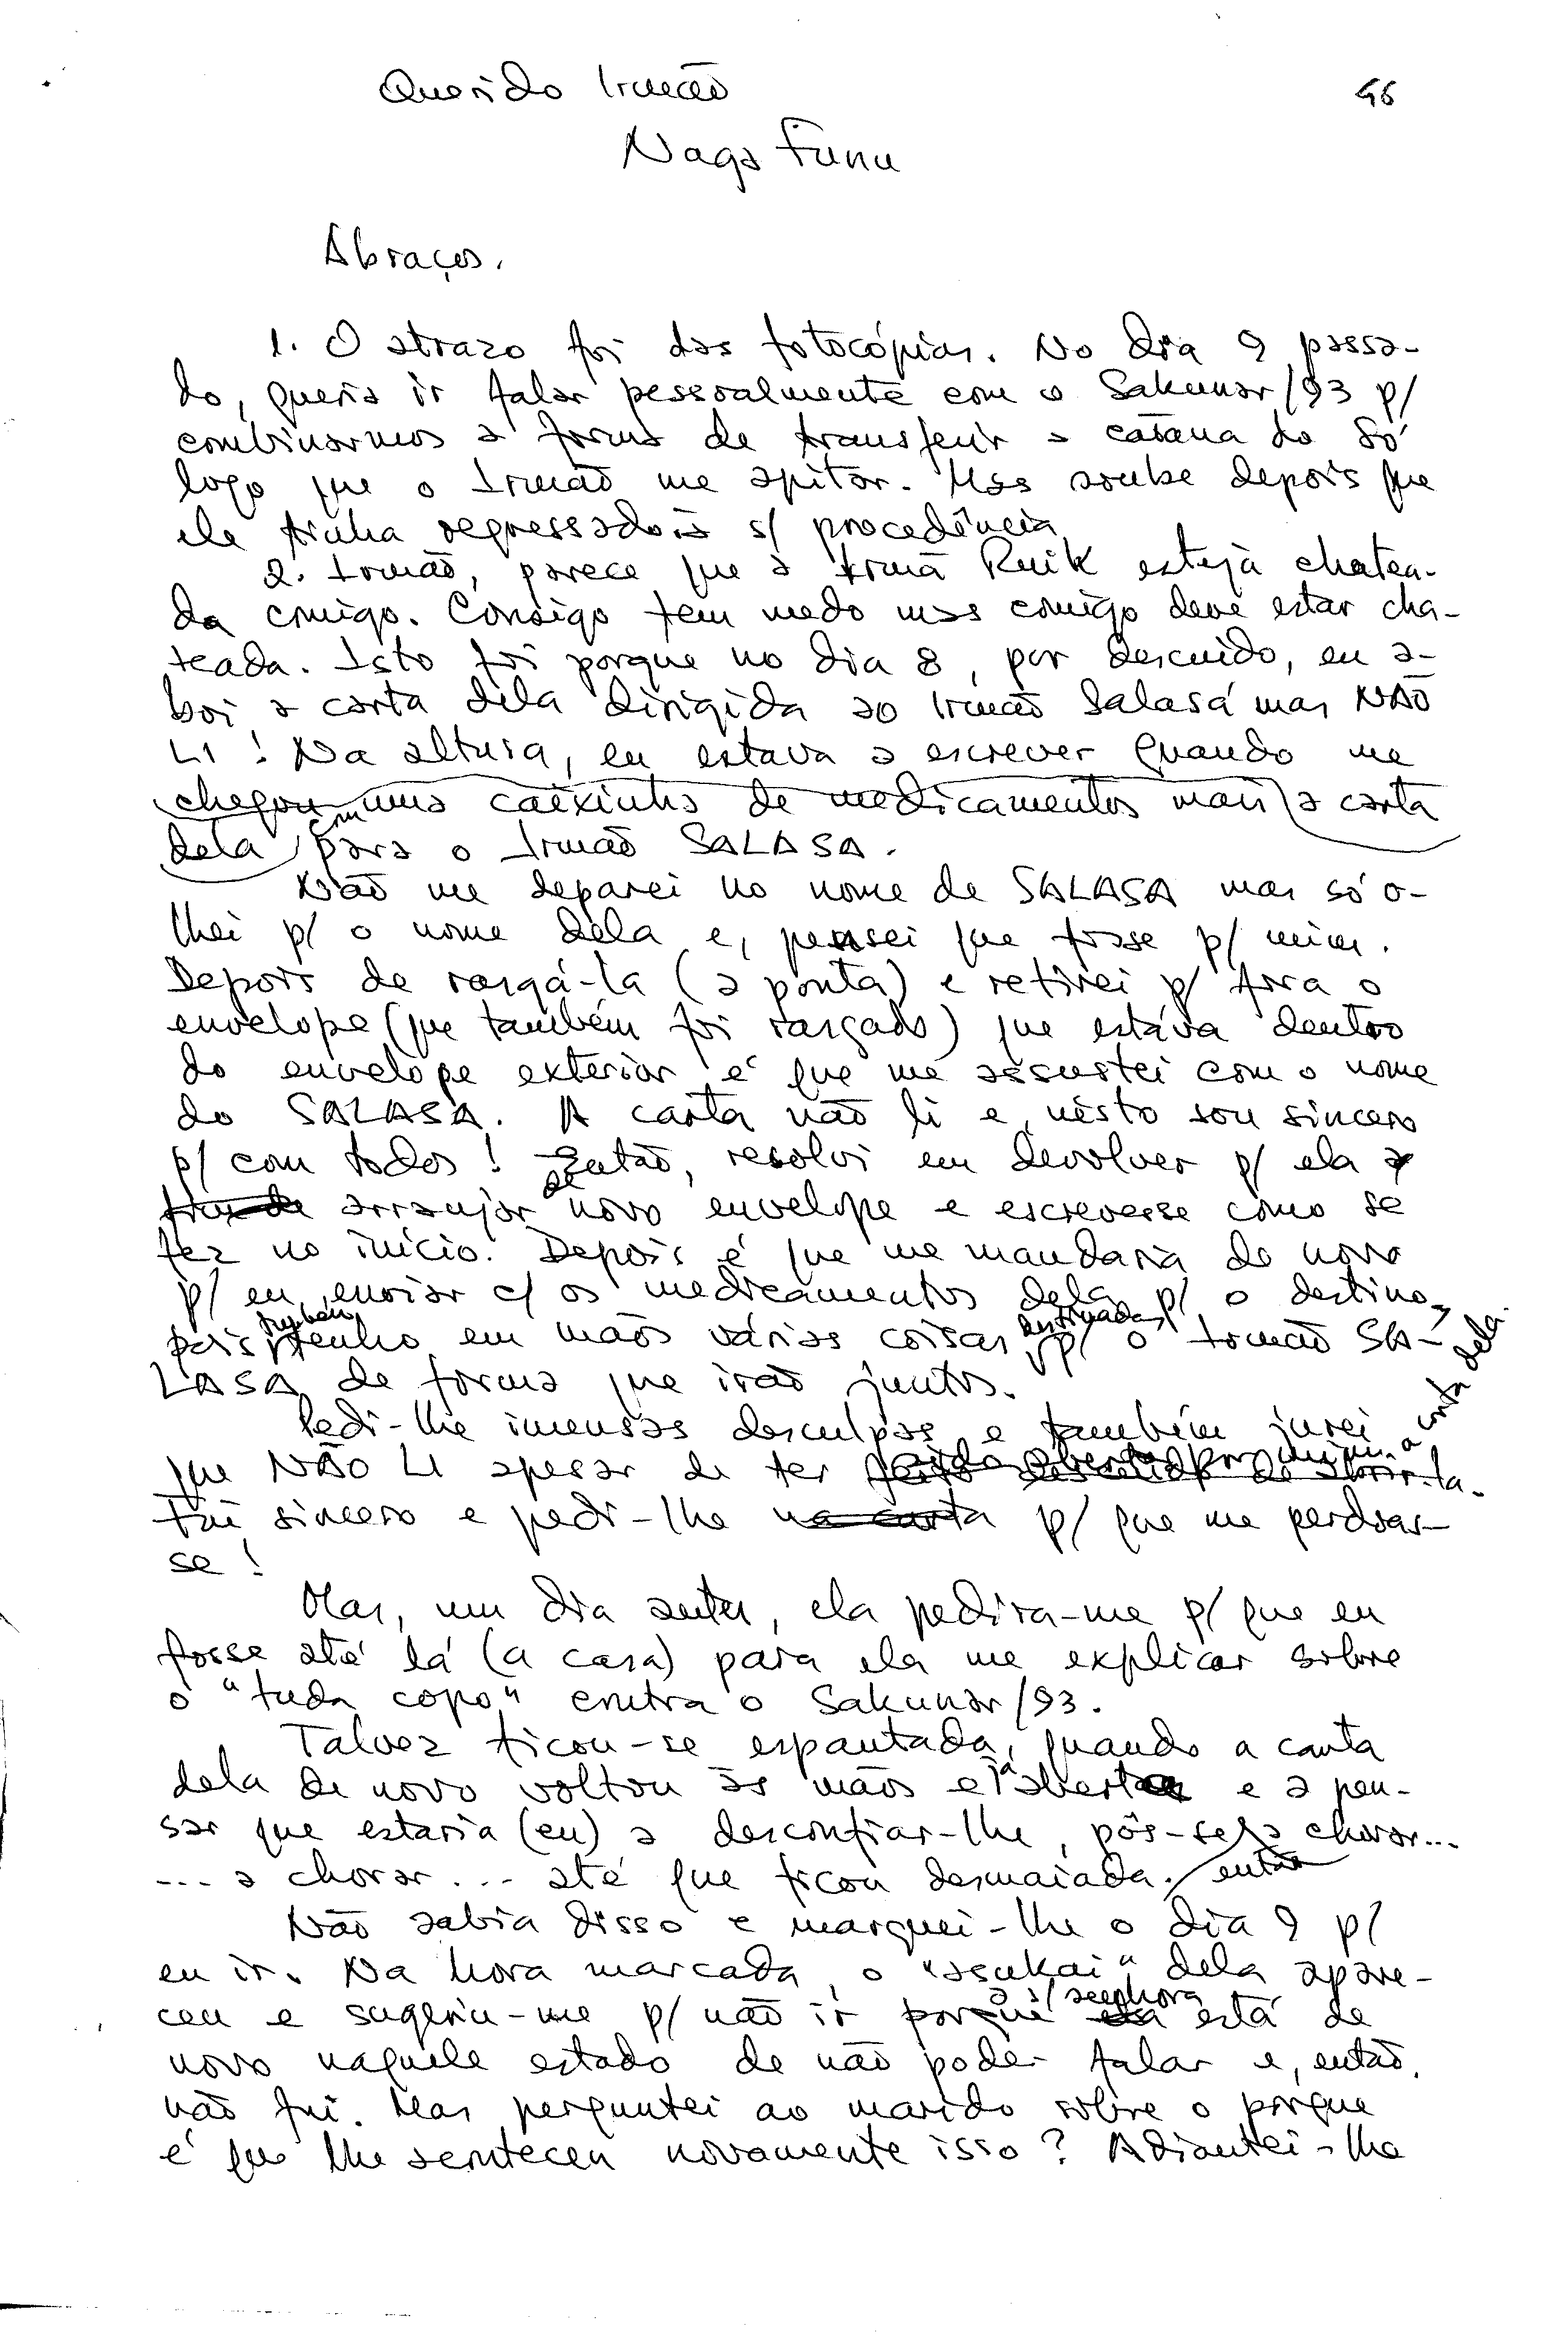 Querido Irmão
46
Naga Funu
Abraços.
1. O atrazo foi das fotocópias. No dia 9 passa-
do, queria ir falar pessoalmente com o Sakunar/93 p/
combinarmos a forma de transferir a catana do Só
logo que o Irmão me apitar. Mas soube depois que
ele tinha regressado à s/ procedência
2. Irmão, parece que a Irmã Ruik esteja chatea-
da comigo. Consigo tem medo mas comigo deve estar cha-
teada. Isto foi porque no dia 8, por descuido, eu a-
bri a carta dela dirigida ao Irmão Salasá mas NÃO
LI! Na altura, eu estava a escrever quando me
chegou uma caixinha de medicamentos mais a carta
dela para o Irmão SALASA.
Não me deparei no nome de SALASA mas só o-
lhei p/ o nome dela e, pensei que fosse p/ mim.
Depois de rasgá-la (a ponta) e retirei p/ fora o
envelope (que também foi rasgado) que estava dentro
do envelope exterior é que me assustei com o nome
do SALASA. A carta não li e, nisto sou sincero
p/ com todos! Então, resolvi em devolver p/ ela
de
arranjar novo envelope e escrevesse como se
fez no início. Depois é que me mandaria de novo
p/ eu enviar c/ os medicamentos dela p/ o destino,
também destinadas
pois tenho em mãos várias coisas p/ o Irmão SA-
LASA de forma que irão juntos.
Pedi-lhe imensas desculpas e também jurei
que NÃO LI apesar de ter sido aberta por mim a carta dela.
Fui sincero e pedi-lhe p/ que me perdoas-
se!
Mas, um dia antes, ela pedira-me p/ que eu
fosse até lá (a casa) para ela me explicar sobre
o "tuda copo" contra o Sakunar/93.
Talvez ficou-se espantada, quando a carta
dela de novo voltou às mãos e já aberta e a pen-
sar que estaria (eu) a desconfiar-lhe, pôs-se a chorar...
... a chorar... até que ficou desmaiada. então
Não sabia disso e marquei-lhe o dia 9 p/
eu ir. Na hora marcada, o "asukai" dela apare-
a s/ senhora
ceu e sugeriu-me p/ não ir porque está de
novo naquele estado de não poder falar e, então,
não fui. Mas perguntei ao marido sobre o porque
é que lhe aconteceu novamente isso? Adiantei-lhe